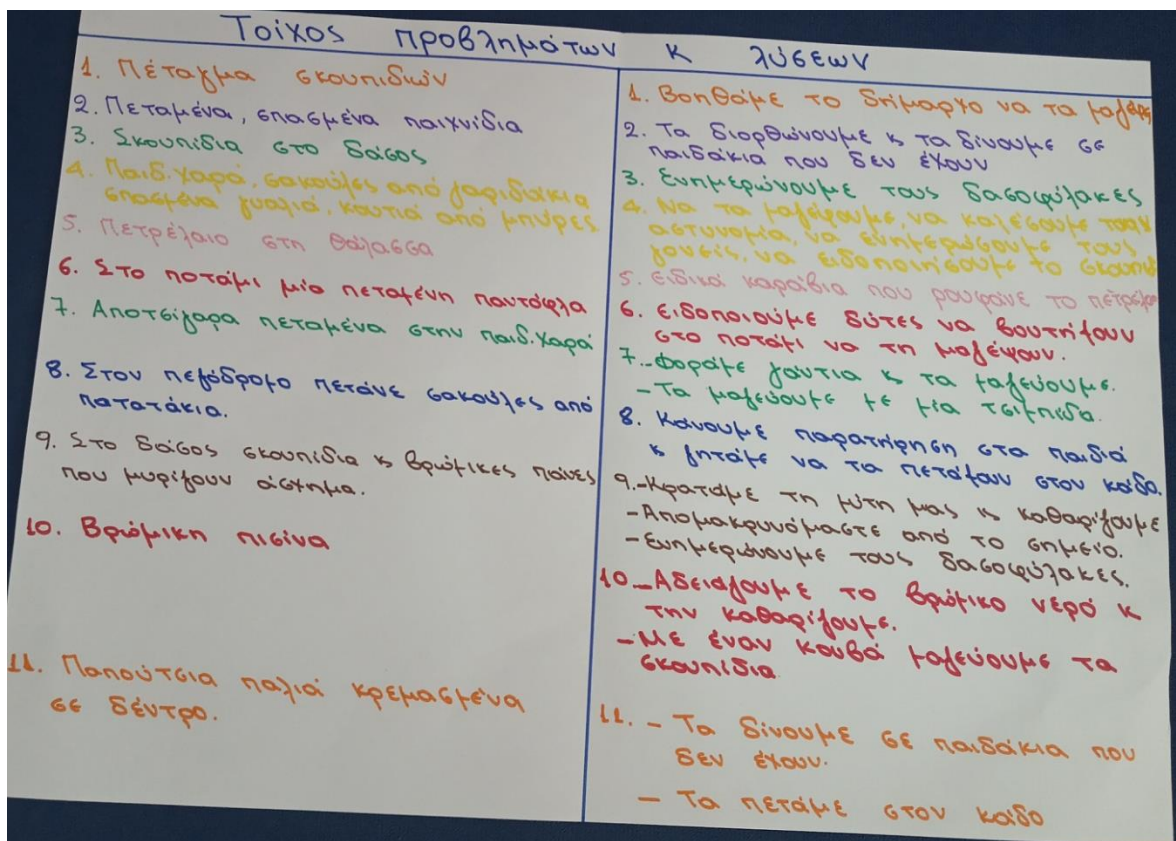 Τοίχος προβλημάτων κ λύσεων
1. Πέταγμα σκουπιδιών
2. Πεταμένα, σπασμένα παιχνίδια
3. Σκουπίδια στο δάσος
4. Παιδ. χαρά, σακούλες από γαριδάκια
σπασμένα γυαλιά, κουτιά από μπύρες
5. Πετρέλαιο στη θάλασσα
6. Στο ποτάμι μία πεταμένη παντόφλα
7. Αποτσίγαρα πεταμένα στην παιδ. χαρά
8. Στον πεζόδρομο πετάνε σακούλες από
πατατάκια.
9. Στο δάσος σκουπίδια κ βρώμικες πάνες
που μυρίζουν άσχημα.
10. Βρώμικη πισίνα
11. Παπούτσια παλιά κρεμασμένα
σε δέντρο.
1. Βοηθάμε το δήμαρχο να τα
2. Τα διορθώνουμε κ τα δίνουμε σε
παιδάκια που δεν έχουν
3. Ενημερώνουμε τους δασοφύλακες
4. Να τα μαζέψουμε, να καλέσουμε
αστυνομία, να ενημερώσουμε τους
γονείς, να ειδοποιήσουμε το
5. Ειδικά καράβια που ρουφάνε το πετρέλαιο
6. Ειδοποιούμε δύτες να βουτήξουν
στο ποτάμι να τη μαζέψουν.
7. -Φοράμε γάντια κ τα μαζεύουμε.
- Τα μαζεύουμε με μία τσιμπίδα.
8. Κάνουμε παρατήρηση στα παιδιά
κ ζητάμε να τα πετάξουν στον κάδο.
9. -Κρατάμε τη μύτη μας κ καθαρίζουμε
-Απομακρυνόμαστε από το σημείο.
-Ενημερώνουμε τους δασοφύλακες.
10. -Αδειάζουμε το βρώμικο νερό κ
την καθαρίζουμε.
-Με έναν κουβά μαζεύουμε τα
σκουπίδια
11. - Τα δίνουμε σε παιδάκια που
δεν έχουν.
- Τα πετάμε στον κάδο